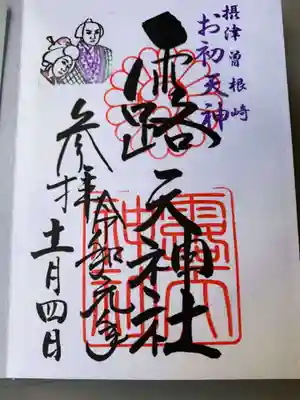 摂津曽根崎
お初天神
露天神社
参拝
令和元年
十一月四日
露天神社